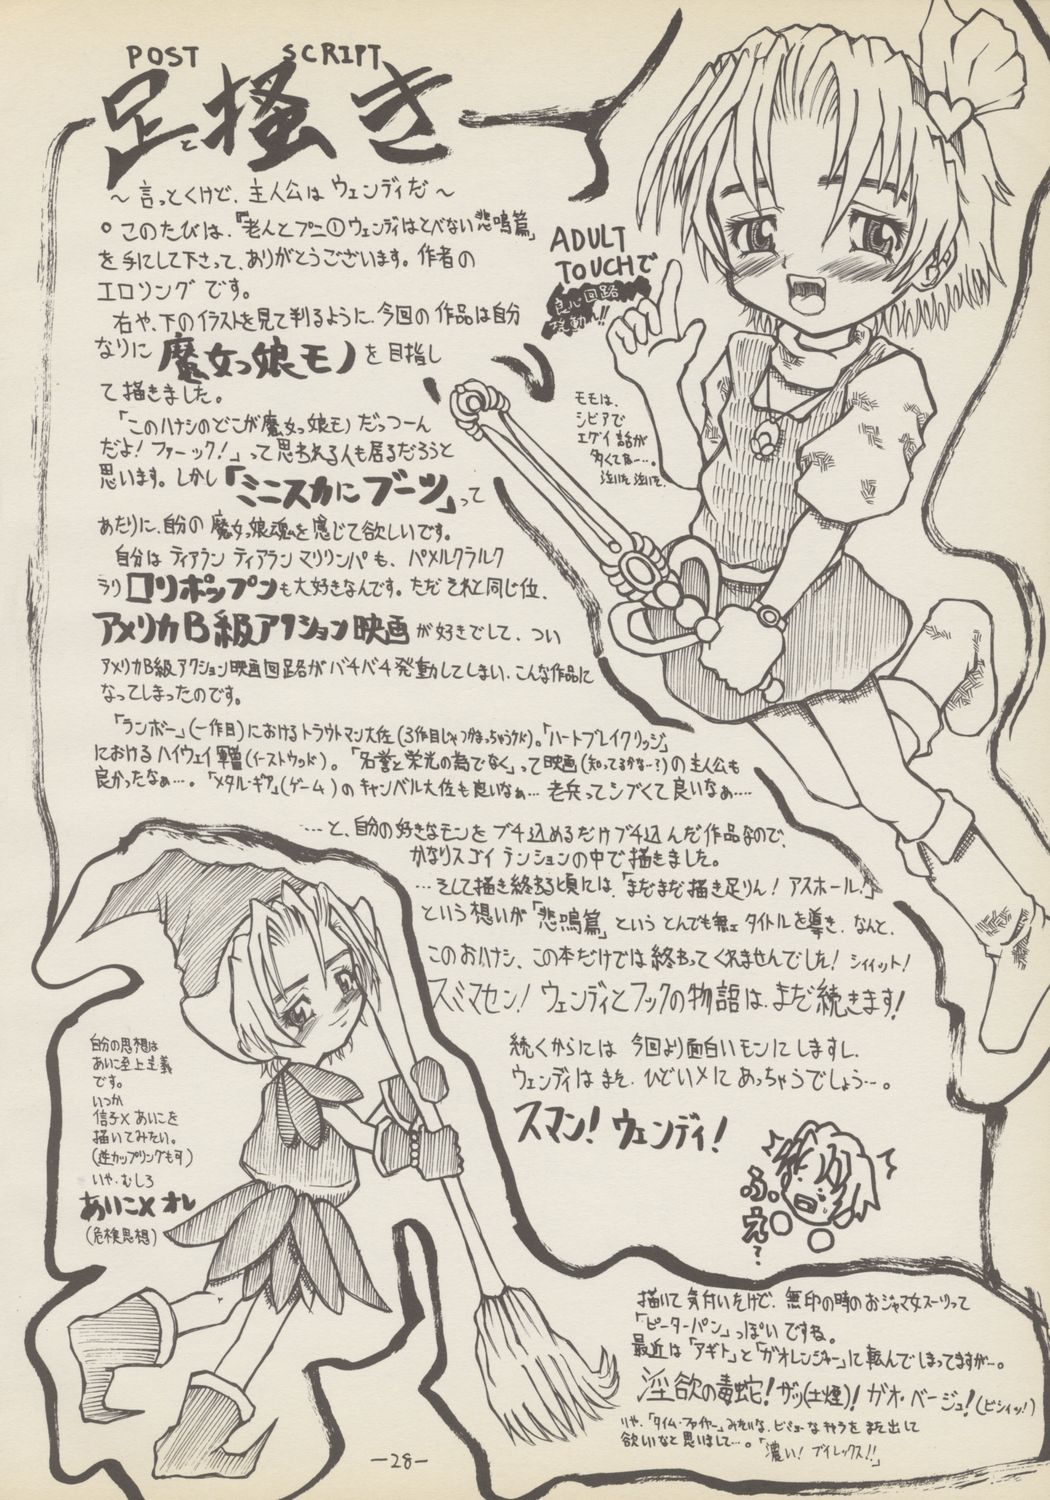 POST SCRIPT
足と掻き
~言っとくけど、主人公はウェンディだ~
。このたびは、「老人とプー①ウェンディはとべない悲鳴篇」
を手にして下さって、ありがとうございます。作者の
エロソングです。
右や、下のイラストを見て判るように、今回の作品は自分
なりに魔女っ娘モノを目指し
て描きました。
「このハナシのどこが魔女っ娘モノだっつーん
だよ!ファーック!」って思われる人も居るだろうと
思います。しかし「ミニスカにブーツ」って
あたりに、自分の魔女っ娘魂を感じて欲しいです。
自分はティアランティアランマリリンパも、パメルクラルク
ラリロリポップンも大好きなんです。ただそれと同じ位、
アメリカB級アクション映画が好きでして、つい
アメリカB級アクション映画回路がバチバチ発動してしまい、こんな作品に
なってしまったのです。
「ランボー」(一作目)におけるトラウトマン大佐(3作目じゃつかまっちゃうケド)。「ハートブレイクリッジ」
におけるハイウェイ軍曹(イーストウッド)。「名誉と栄光の為でなく」って映画(知ってるかな…?)の主人公も
良かったなぁ…。「メタル・ギア」(ゲーム)のキャンベル大佐も良いなぁ…老兵ってシブくて良いなぁ…
…と、自分の好きなモンをブチ込めるだけブチ込んだ作品なので、
かなりスゴイテンションの中で描きました。
…そして描き終わる頃には、「まだまだ描き足りん!アスホール!」
という想いが「悲鳴篇」というとんでも無ェタイトルを導き、なんと、
このおハナシ、この本だけでは終わってくれませんでした!シィイット!
スミマセン!ウェンディとフックの物語は、まだ続きます!
続くからには今回より面白いモンにしますし、
ウェンディはまた、ひどいメにあっちゃうでしょう…。
スマン!ウェンディ!
ふえ?
ADULT
TOUCHで
良心回路
モモは、
シビアで
エグイ話が
多くてな…。
泣いた泣いた。
自分の思想は
あいこ至上主義
です。
いつか
信子×あいこを
描いてみたい。
(逆カップリングも可)
いや、むしろ
あいこ×オレ
(危険思想)
描いて気付いたけど、無印の時のおジャ魔女スーツって
「ピーターパン」っぽいですね。
最近は「アギト」と「ガオレンジャー」に転んでしまってますが…。
淫欲の毒蛇!ザッ(土煙)!ガオ・ベージュ!(ビシィッ!)
いや、「タイム・ファイヤー」みたいな、ビミョーなキャラをまた出して
欲しいなと思いまして…。「濃い!ブイレックス!!」
-28-